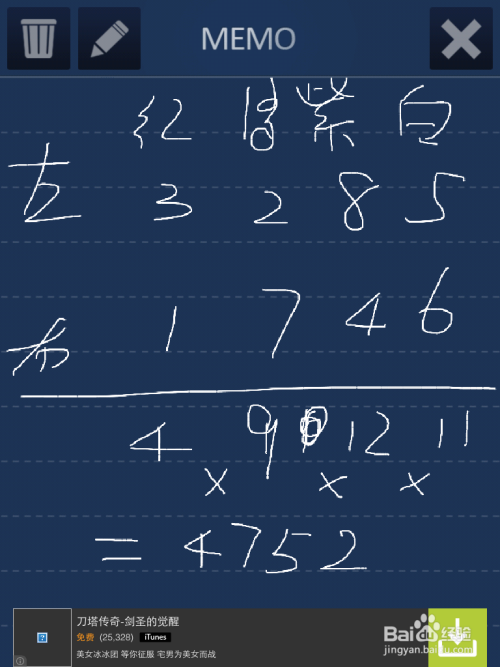 MEMO
红 紫 白
左 3 2 8 5
右 1 7 4 6
4 9 12 11
× × ×
= 4752
刀塔传奇-剑圣的觉醒
免费 (25,328) iTunes
美女冰冰团 等你征服 宅男为美女而战
Baidu 经验
jingyan.baidu.com